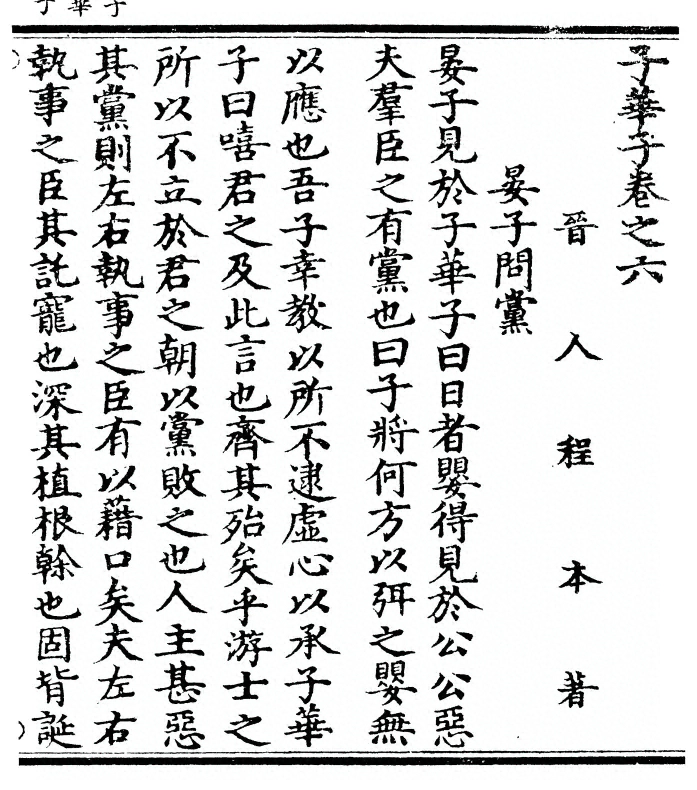 子華子
子華子卷之六
晉人程本著
晏子問黨
晏子見於子華子曰日者嬰得見於公公惡
夫羣臣之有黨也曰子將何方以弭之嬰無
以應也吾子幸教以所不逮虛心以承子華
子曰嘻君之及此言也齊其殆矣乎游士之
所以不立於君之朝以黨敗之也人主甚惡
其黨則左右執事之臣有以藉口矣夫左右
執事之臣其託寵也深其植根榦也固背誕